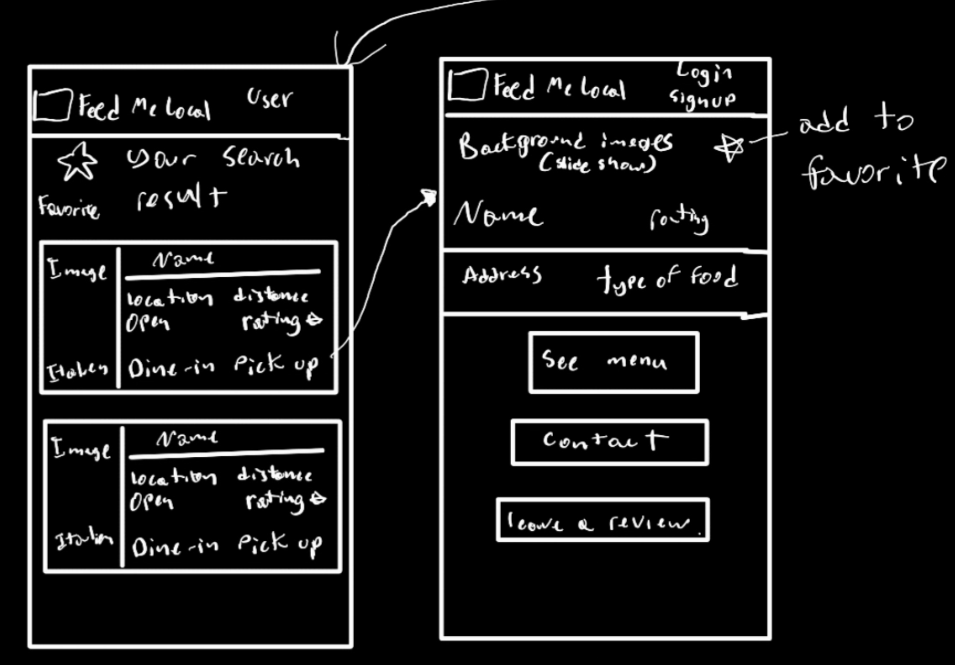 Feed Me Local User
your search
result
Favorite
Image Name
location distance
Open rating
Italien Dine-in Pick up
Image Name
location distance
Open rating
Italien Dine-in Pick up
Feed Me Local Login
signup
Background images
(slide show)
add to
favorite
Name rating
Address type of food
See menu
Contact
leave a review.